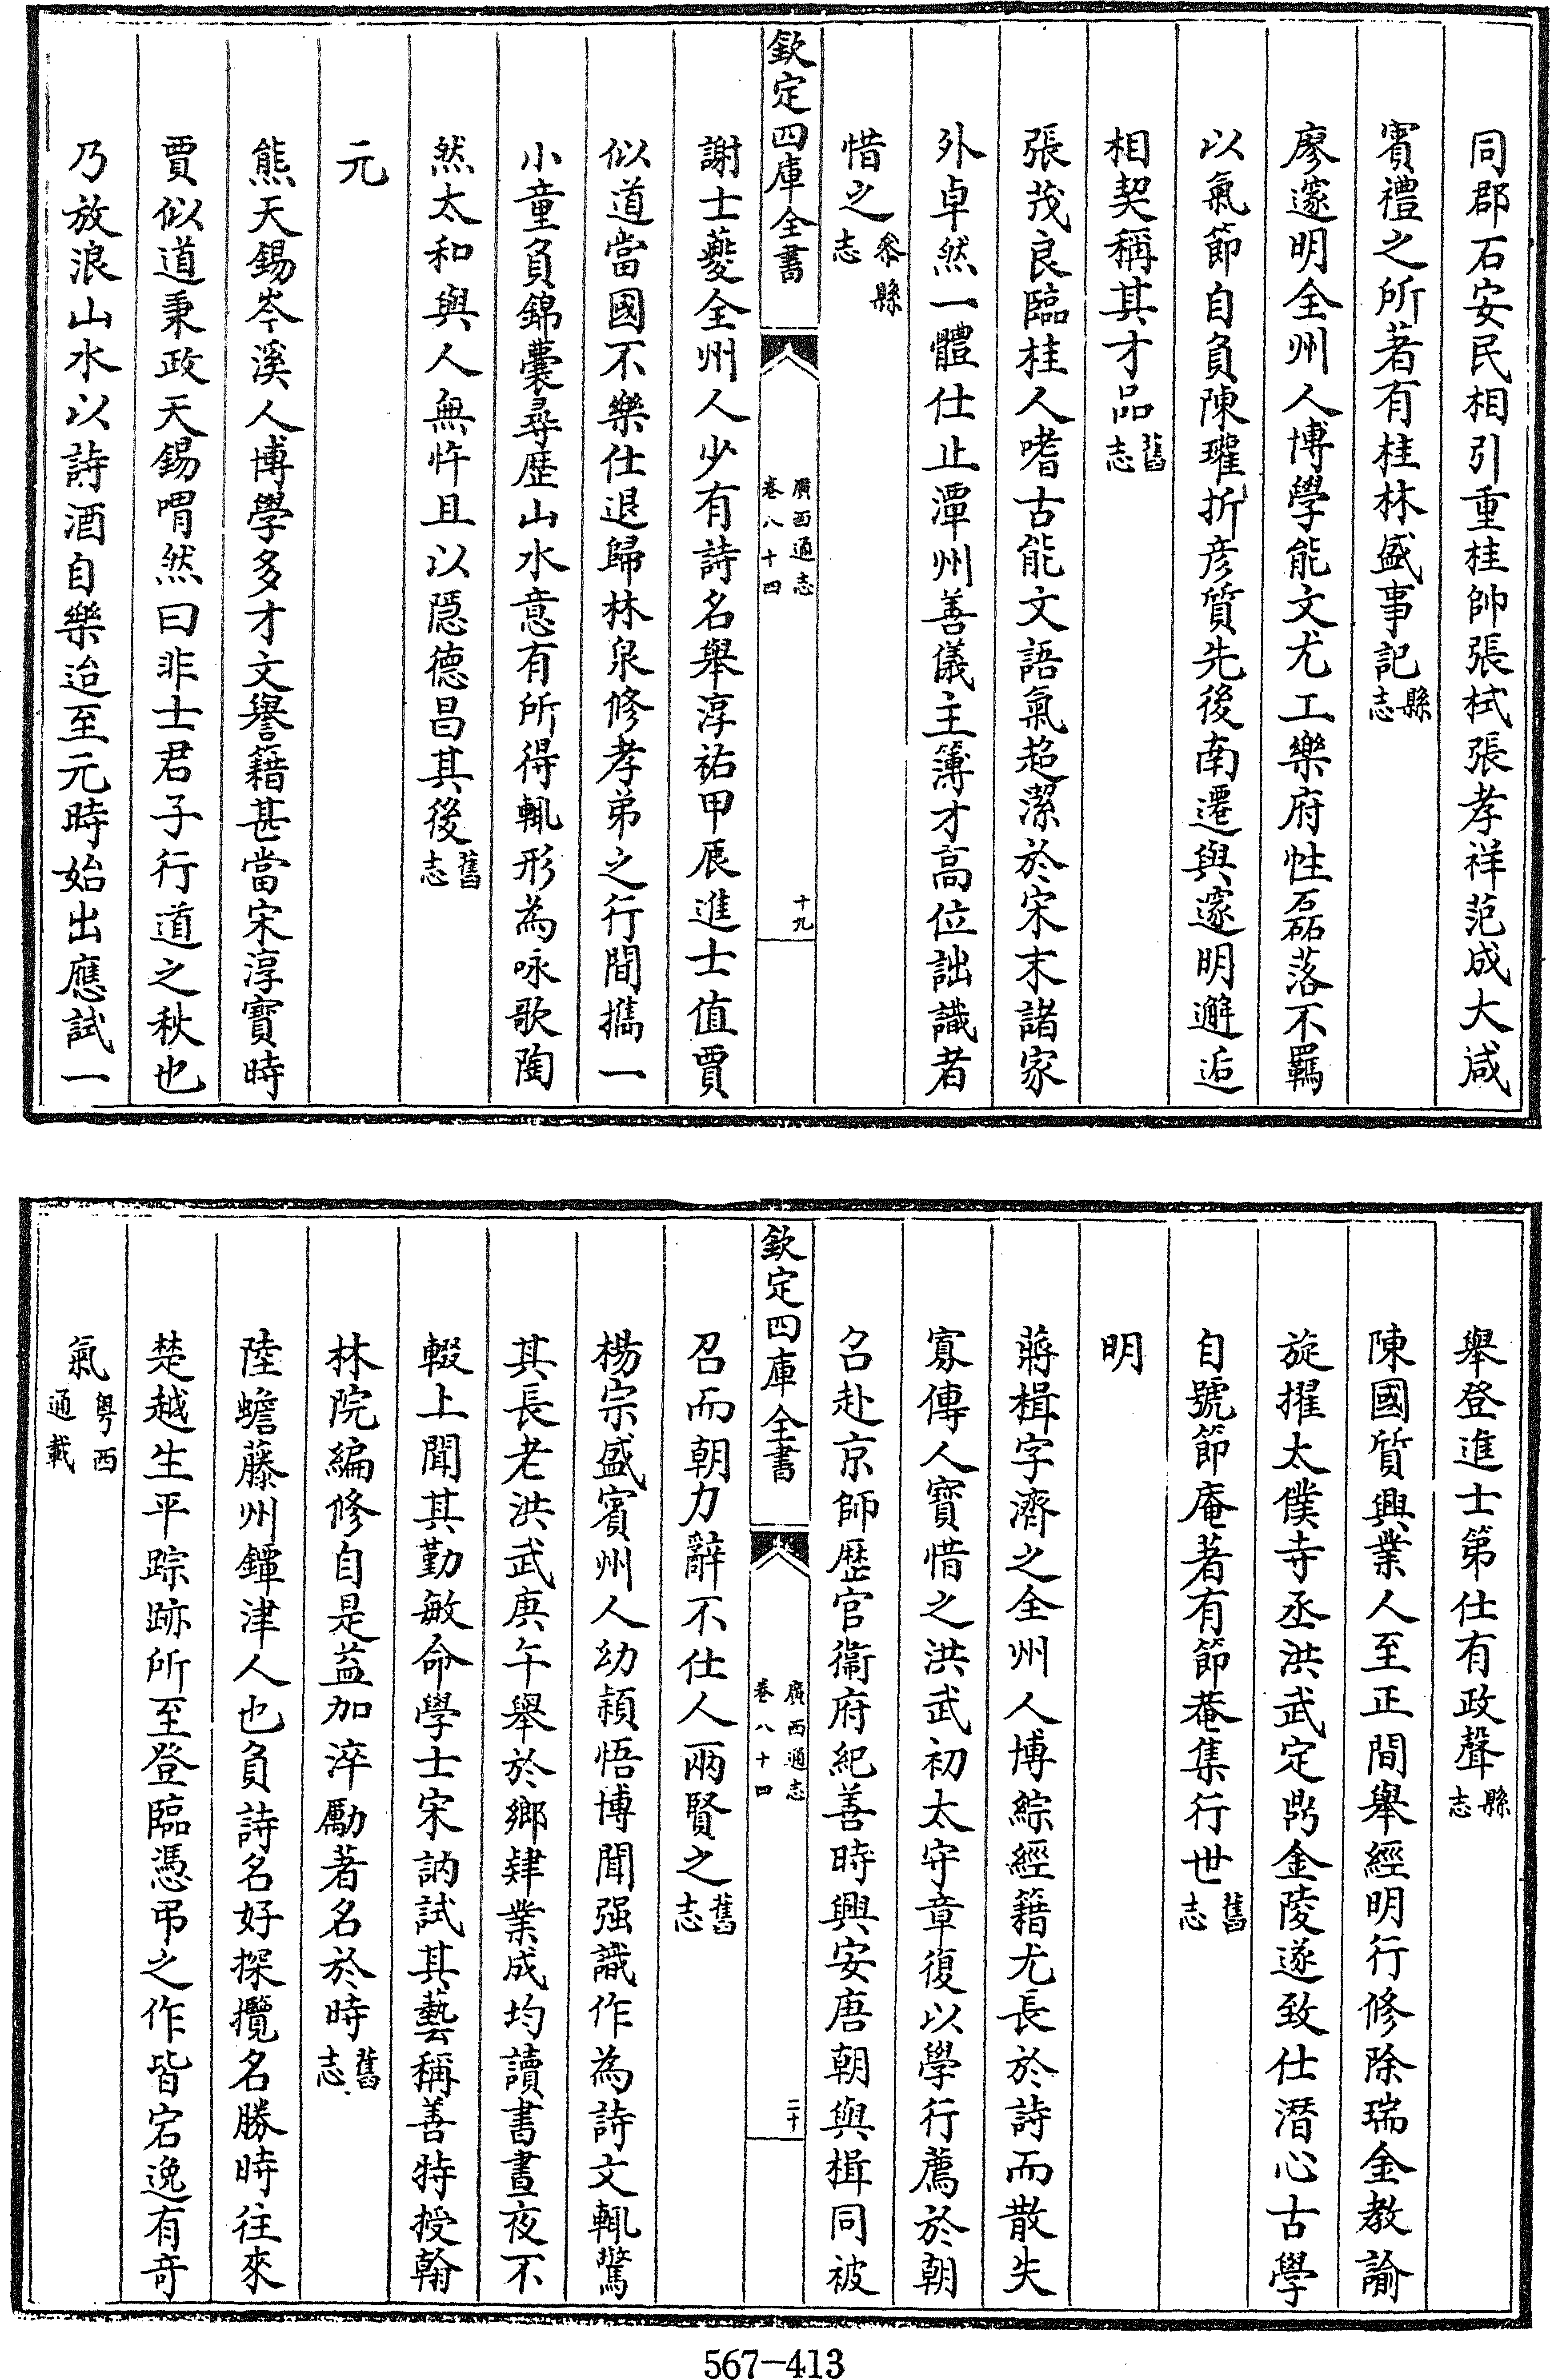 同郡石安民相引重桂帥張栻張孝祥范成大咸
賓禮之所著有桂林盛事記縣志
廖邃明全州人博學能文尤工樂府性磊落不羈
以氣節自負陳瓘折彦質先後南遷與邃明邂逅
相契稱其才品舊志
張茂良臨桂人嗜古能文語氣超潔於宋末諸家
外卓然一體仕止潭州善儀主簿才高位詘識者
惜之叅縣志
欽定四庫全書
廣西通志
卷八十四
十九
謝士夔全州人少有詩名舉淳祐甲辰進士值賈
似道當國不樂仕退歸林泉修孝弟之行間攜一
小童負錦囊尋歷山水意有所得輒形為咏歌陶
然太和與人無忤且以隱德昌其後舊志
元
熊天錫岑溪人博學多才文譽籍甚當宋淳寶時
賈似道秉政天錫喟然曰非士君子行道之秋也
乃放浪山水以詩酒自樂迨至元時始出應試一
舉登進士第仕有政聲縣志
陳國質興業人至正間舉經明行修除瑞金教諭
旋擢太僕寺丞洪武定鼎金陵遂致仕潛心古學
自號節庵著有節菴集行世舊志
明
蔣楫字濟之全州人博綜經籍尤長於詩而散失
寡傳人寶惜之洪武初太守章復以學行薦於朝
召赴京師歷官衛府紀善時興安唐朝與楫同被
欽定四庫全書
廣西通志
卷八十四
二十
召而朝力辭不仕人兩賢之舊志
楊宗盛賓州人幼穎悟博聞强識作為詩文輒驚
其長老洪武庚午舉於鄉肄業成均讀書晝夜不
輟上聞其勤敏命學士宋訥試其藝稱善特授翰
林院編修自是益加淬勵著名於時舊志
陸蟾藤州鐔津人也負詩名好探攬名勝時往來
楚越生平踪跡所至登臨憑弔之作皆宕逸有竒
氣粤西通載
567-413